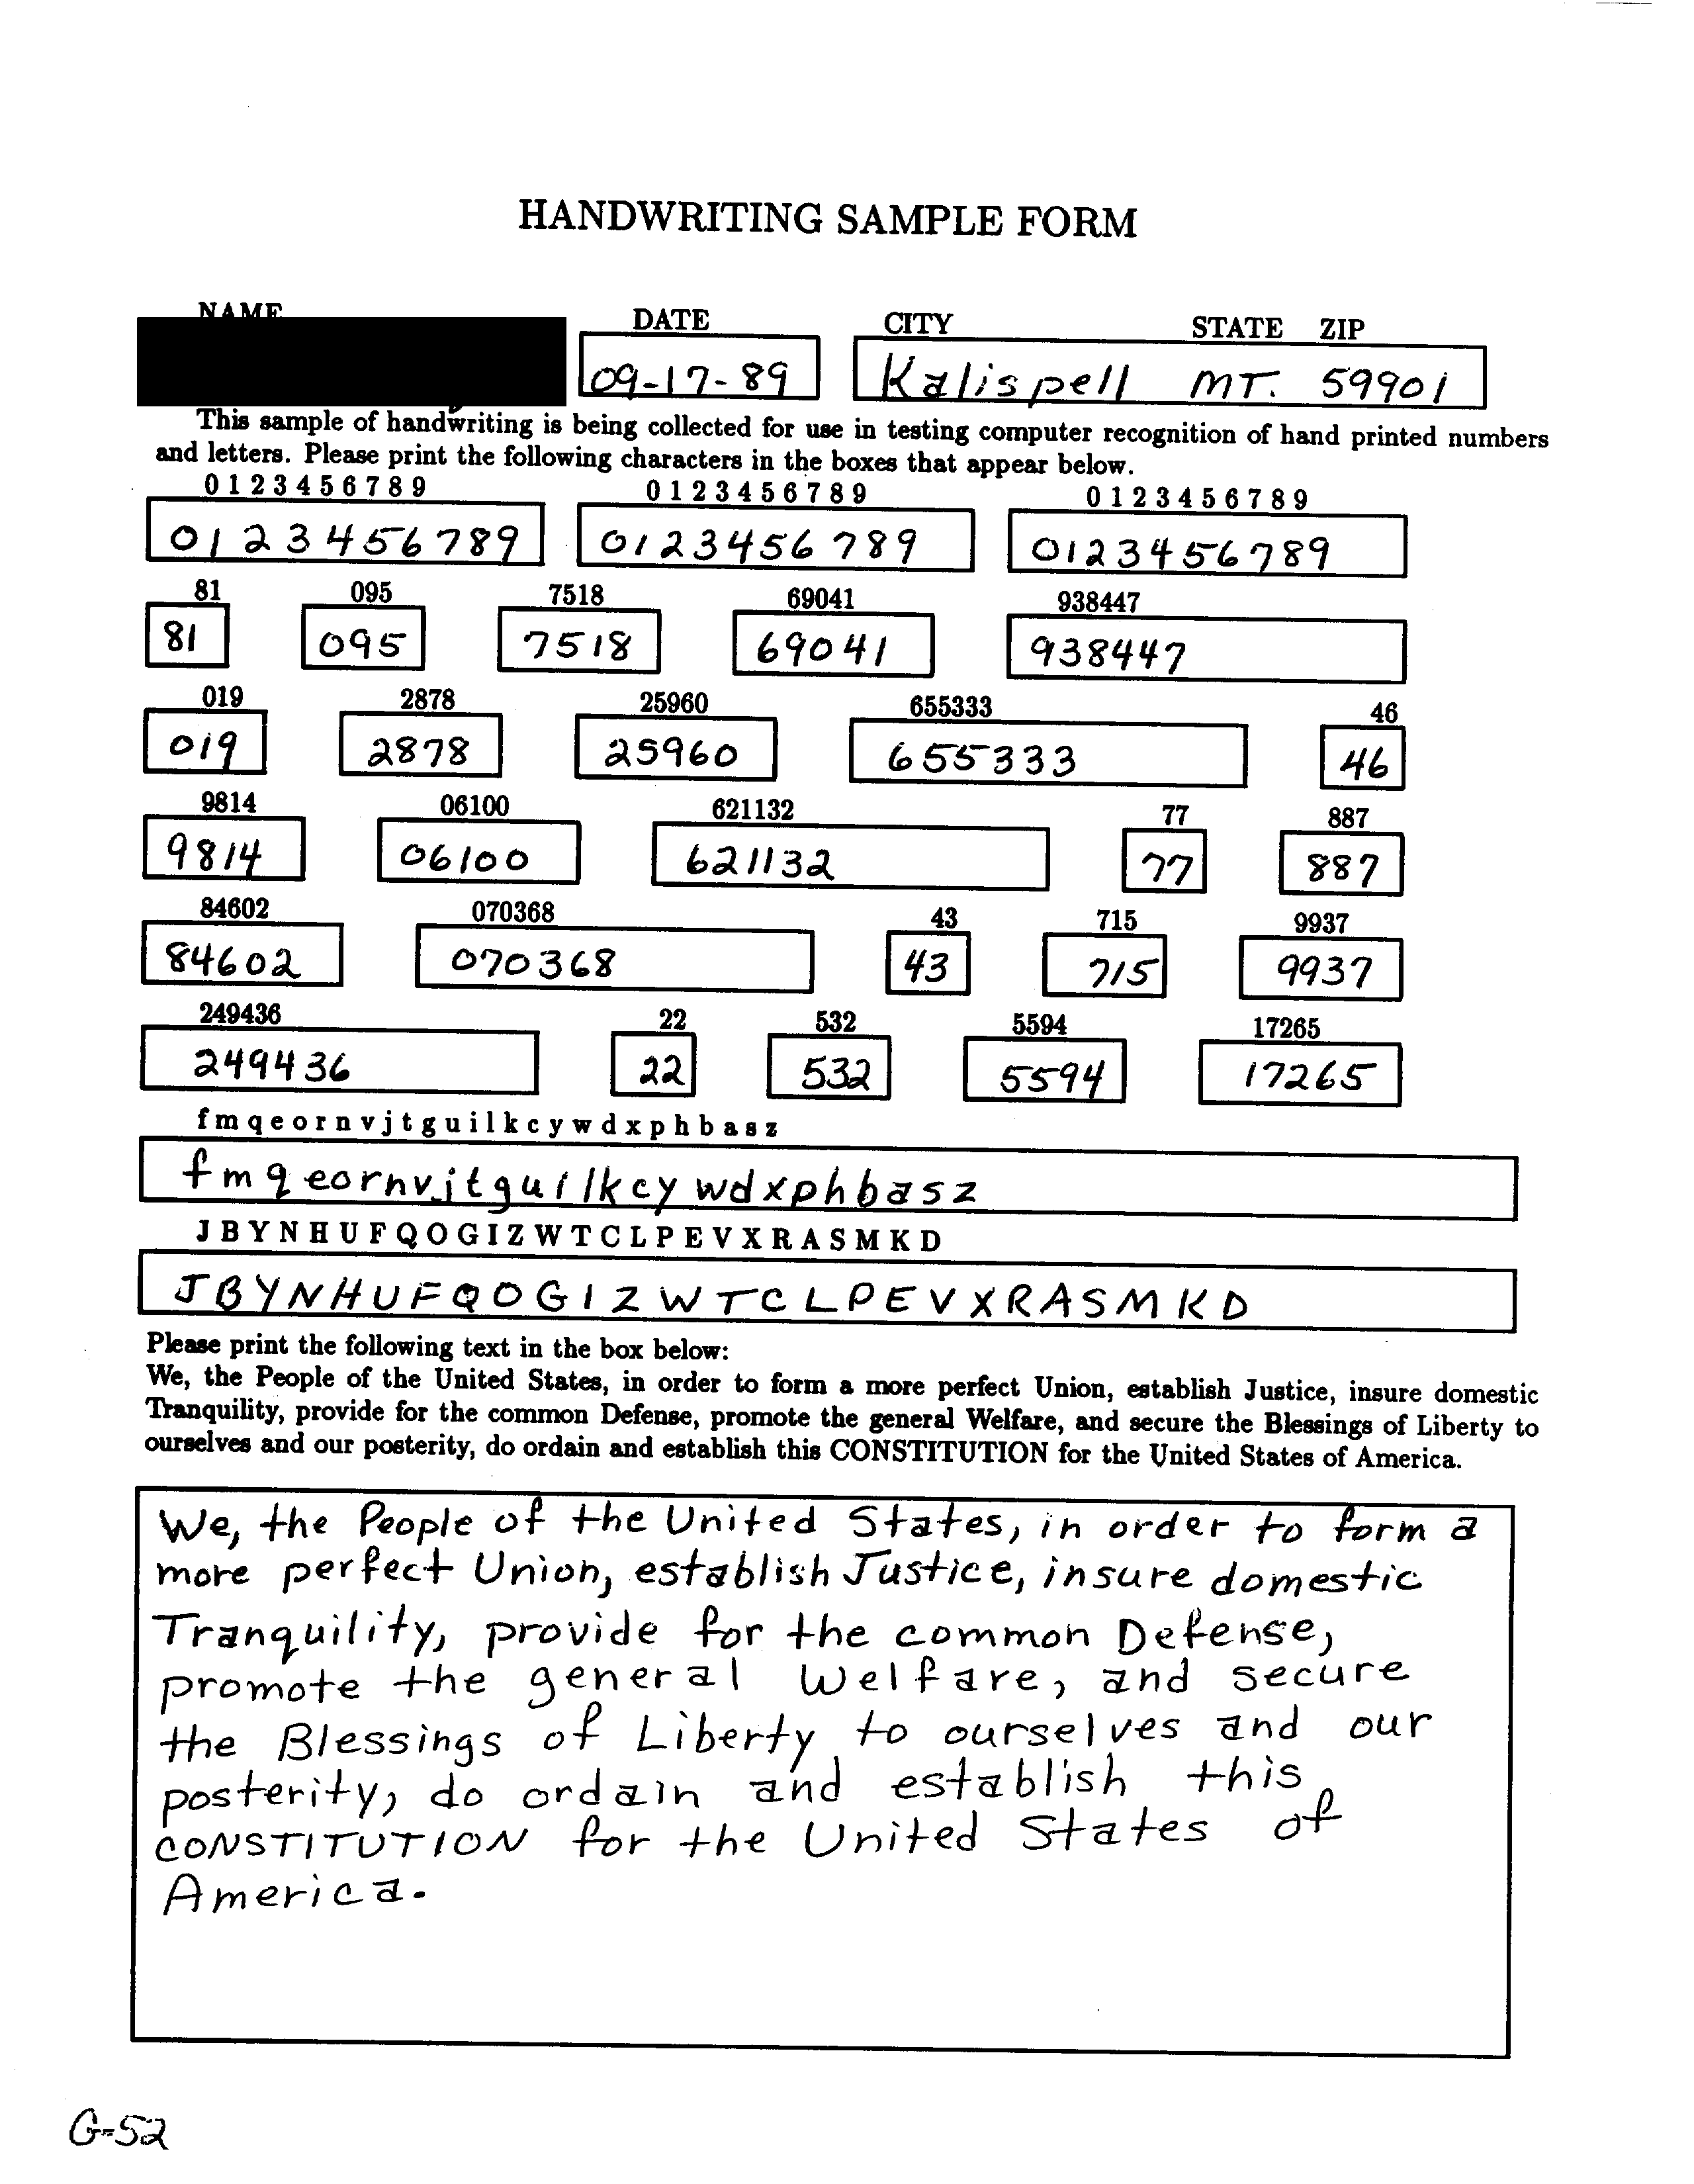 HANDWRITING SAMPLE FORM
NAME DATE CITY STATE ZIP
09-17-89 Kalispell MT. 59901
This sample of handwriting is being collected for use in testing computer recognition of hand printed numbers
and letters. Please print the following characters in the boxes that appear below.
0 1 2 3 4 5 6 7 8 9 0 1 2 3 4 5 6 7 8 9 0 1 2 3 4 5 6 7 8 9
0123456789 0123456789 0123456789
81 095 7518 69041 938447
81 095 7518 69041 938447
019 2878 25960 655333 46
019 2878 25960 655333 46
9814 06100 621132 77 887
9814 06100 621132 77 887
84602 070368 43 715 9937
84602 070368 43 715 9937
249436 22 532 5594 17265
249436 22 532 5594 17265
f m q e o r n v j t g u i l k c y w d x p h b a s z
fmqeornvjtguilkcywdxphbasz
J B Y N H U F Q O G I Z W T C L P E V X R A S M K D
JBYNHUFQOGIZWTCLPEVXRASMKD
Please print the following text in the box below:
We, the People of the United States, in order to form a more perfect Union, establish Justice, insure domestic
Tranquility, provide for the common Defense, promote the general Welfare, and secure the Blessings of Liberty to
ourselves and our posterity, do ordain and establish this CONSTITUTION for the United States of America.
We, the People of the United States, in order to form a
more perfect Union, establish Justice, insure domestic
Tranquility, provide for the common Defense,
promote the general Welfare, and secure
the Blessings of Liberty to ourselves and our
posterity, do ordain and establish this
CONSTITUTION for the United States of
America.
G-52